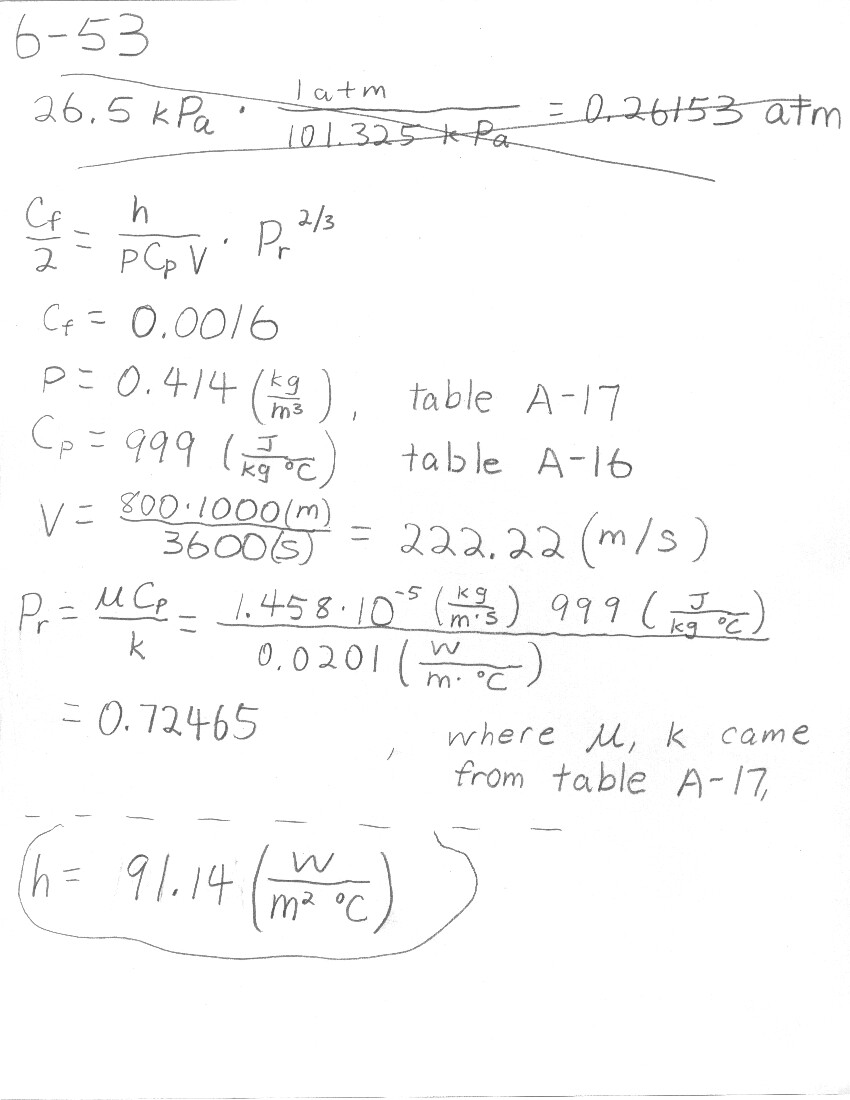 6-53
26.5 kPa · 1 atm / 101.325 kPa = 0.26153 atm
Cf/2 = h / (ρ Cp V) · Pr^2/3
Cf = 0.0016
ρ = 0.414 (kg/m³), table A-17
Cp = 999 (J/kg °C) table A-16
V = 800·1000(m) / 3600(s) = 222.22 (m/s)
Pr = μ Cp / k = 1.458·10^-5 (kg/m·s) 999 (J/kg °C) / 0.0201 (W/m·°C)
= 0.72465
, where μ, k came
from table A-17,
h = 91.14 (W/m² °C)